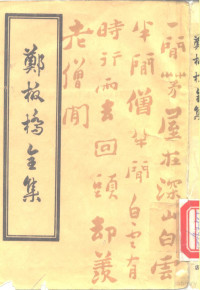 鄭板橋全集
一間茅屋在深山白雲
半間僧半間白雲有
時行雨去回頭却羨
老僧閒
鄭板橋全集